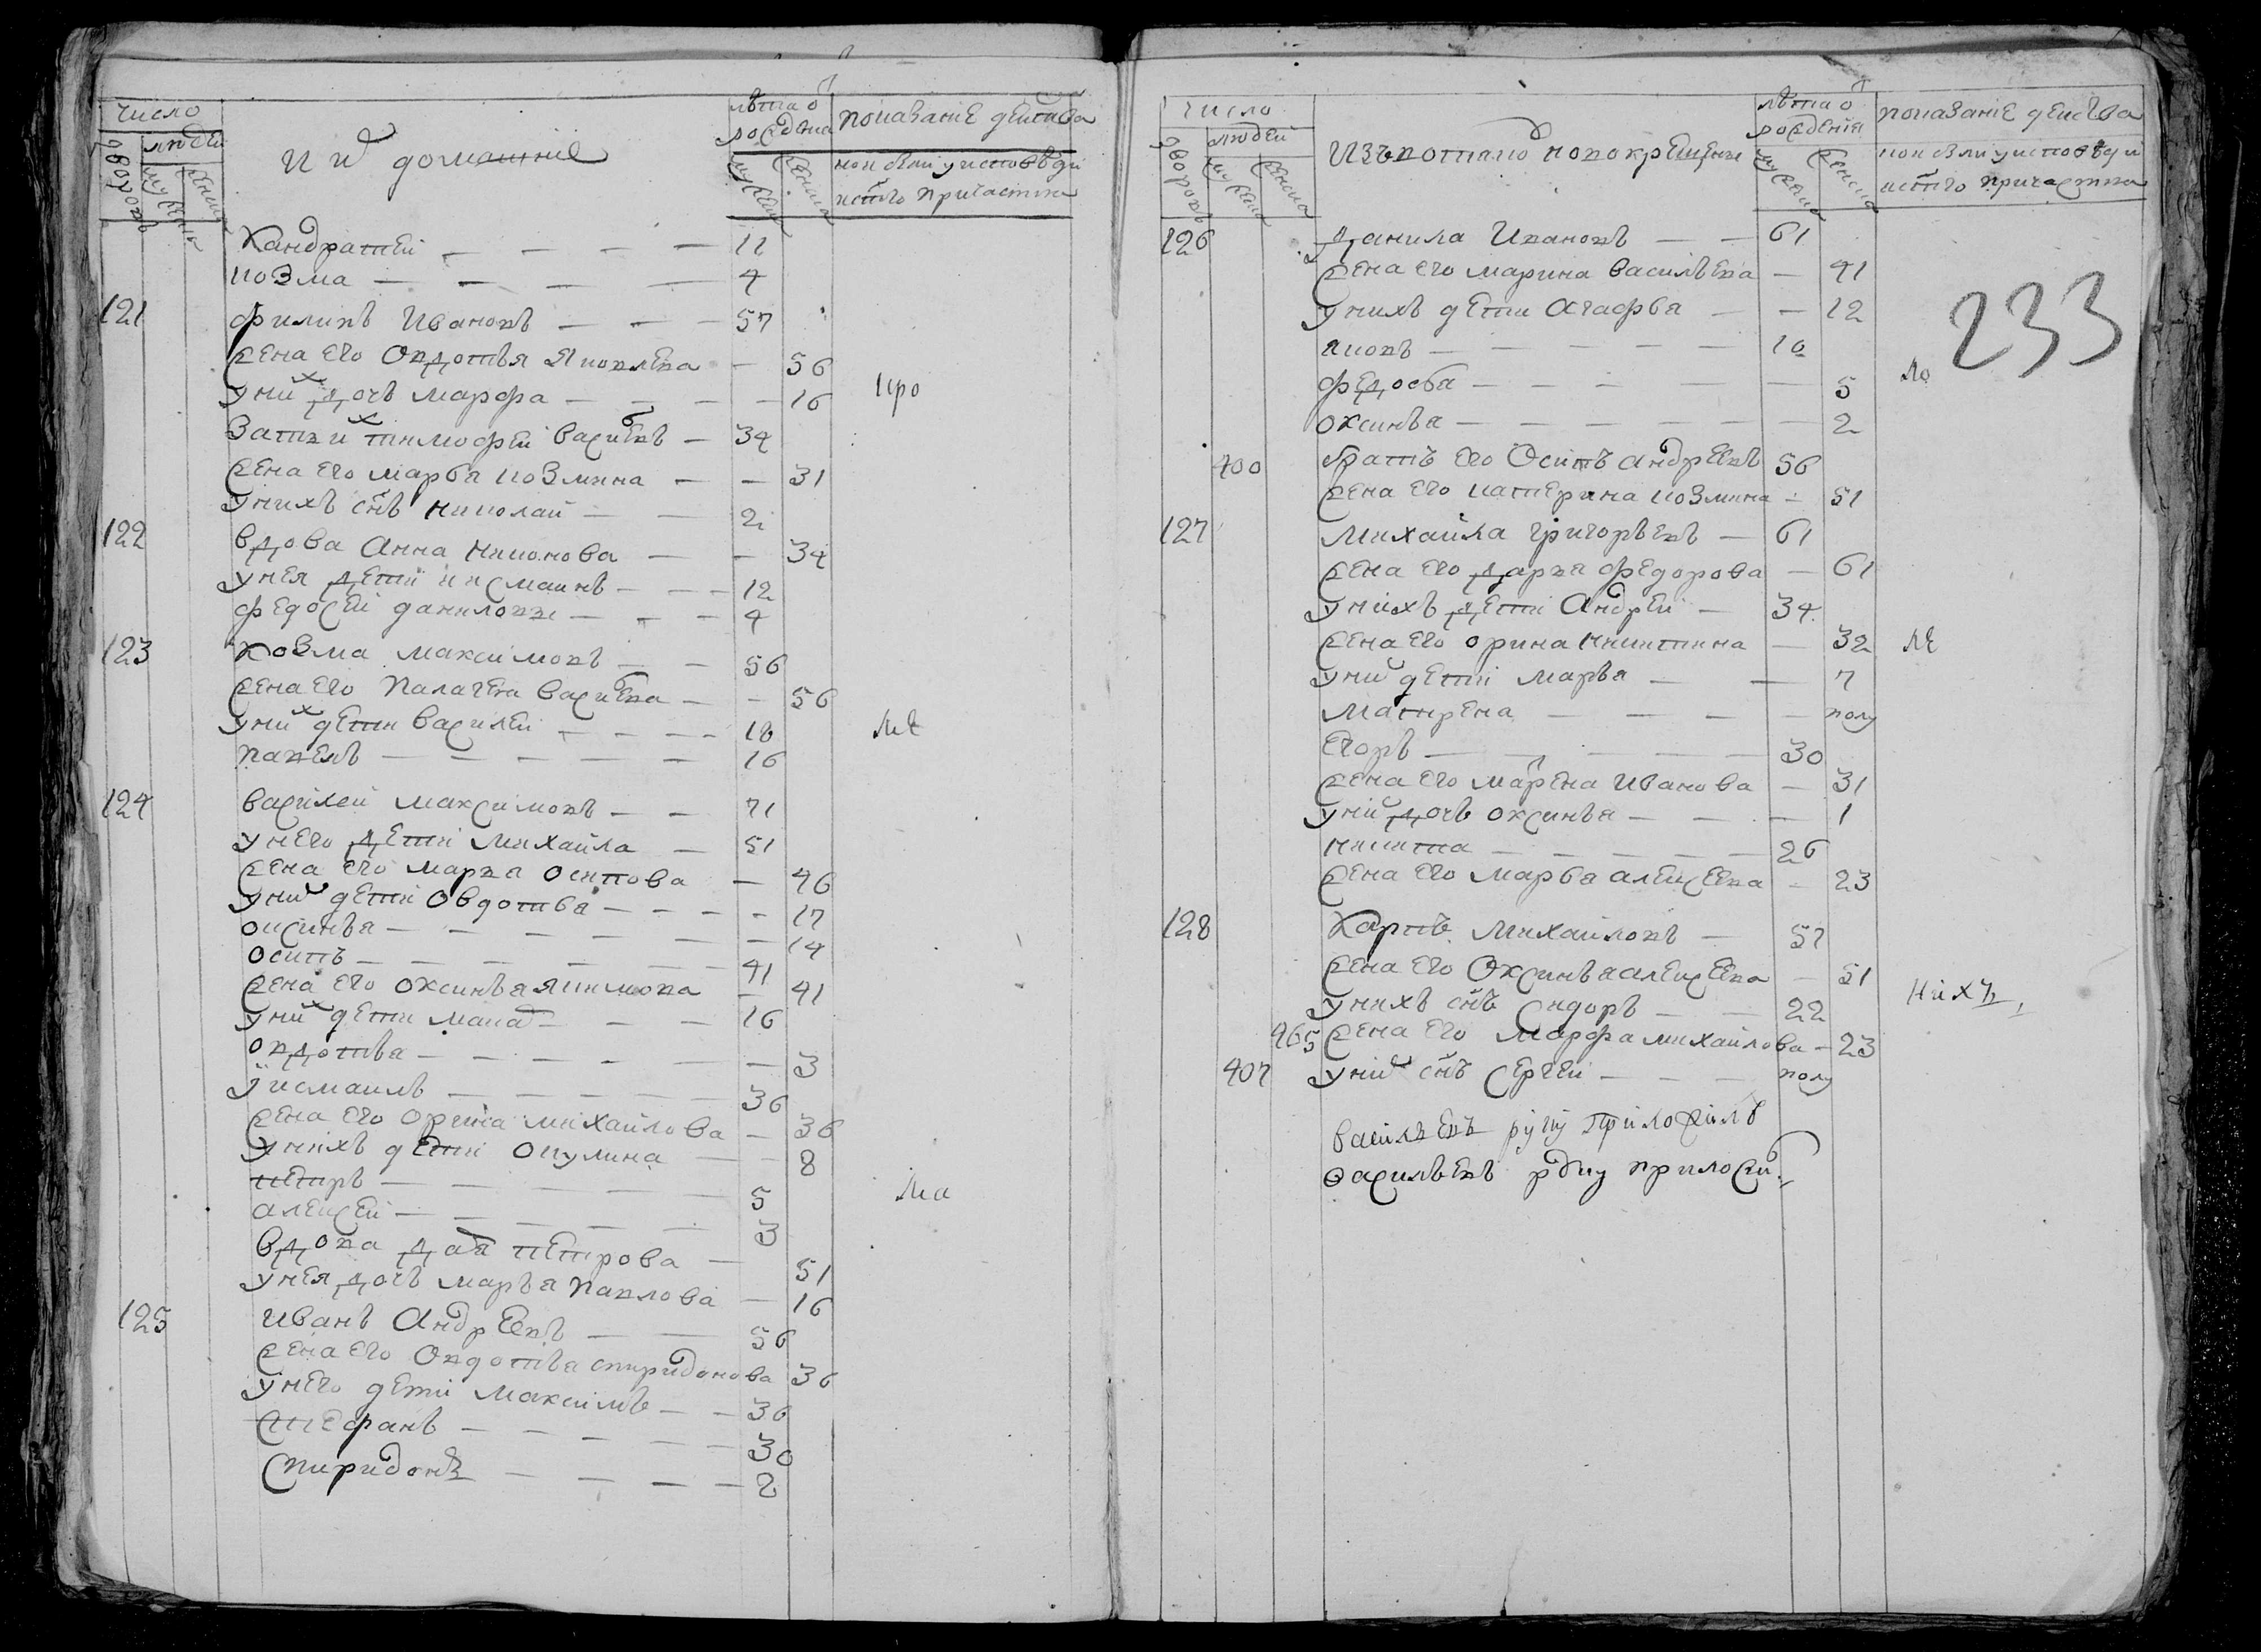 число
людей
дворовъ
мужска
женска
и их домашние
лѣта от рождения
мужска
женска
показание действа
кои были у исповеди
и святаго причастия
Кандратей — 11
козма — 4
121 филипъ Ивановъ — 57
жена его Овдотья Яковлева — 56
у них дочь марфа — 16
Зать их тимофей васильевъ — 34
жена его марья козмина — 31
у нихъ снъ николай — 2
122 вдова Анна никонова — 34
у нея дети исмаилъ — 12
федосей даниловы — 4
123 козма максимовъ — 56
жена его палагея василева — 56
у них дети василей — 18
павелъ — 16
124 василей максимовъ — 71
у него дети михайла — 51
жена его марья осипова — 46
у них дети овдотья — 17
оксинья — 14
осипъ — 41
жена его оксинья якимова — 41
у них дети макар — 16
овдотья — 3
исмаилъ — 36
жена его орина михайлова — 36
у нихъ дети окулина — 8
петръ — 5
алексей — 3
вдова дарья петрова — 51
у нея дочь марья павлова — 16
125 иванъ Андреевъ — 56
жена его овдотья спиридонова 36
у него дети максимъ — 36
стефанъ — 30
спиридонъ — 2
про
ле
ма
число
людей
дворовъ
мужска
женска
Изъ вотяковъ новокрещены
лѣта от рождения
мужска
женска
показание действа
кои были у исповеди
и святаго причастия
233
126 данила Ивановъ — 61
жена его марина васильева — 41
у нихъ дети Агафья — 12
яковъ — 10
федосья — 5
оксинья — 2
400 братъ его Осипъ андреевъ 56
жена его катерина козмина — 51
127 михайла григорьевъ — 61
жена его дарья федорова — 61
у нихъ дети Андрей — 34
жена его орина никитина — 32
у них дети марья — 7
матрена — полу
егоръ — 30
жена его марена иванова — 31
у них дочь оксинья — 1
никита — 26
жена его марья алексеева — 23
128 карпъ михайловъ — 57
жена его Оксинья алексеева — 51
у нихъ снъ сидоръ — 22
465 жена его марфа михайлова — 23
407 у них снъ сергей — полу
ло
ле
нихъ
васильевъ руку приложилъ
васильевъ руку приложи